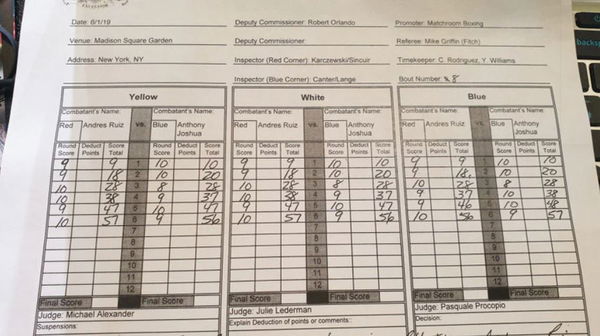 Date: 6/1/19 Deputy Commissioner: Robert Orlando Promoter: Matchroom Boxing
Venue: Madison Square Garden Deputy Commissioner: Referee: Mike Griffin (Fitch)
Address: New York, NY Inspector (Red Corner): Karczewski/Sincuir Timekeeper: C. Rodriguez, Y. Williams
Inspector (Blue Corner): Canter/Lange Bout Number: 8
Yellow White Blue
Combatant's Name: Combatant's Name: Combatant's Name: Combatant's Name: Combatant's Name: Combatant's Name:
Red Andres Ruiz vs. Blue Anthony Joshua Red Andres Ruiz vs. Blue Anthony Joshua Red Andres Ruiz vs. Blue Anthony Joshua
Round Score Deduct Points Score Total Round Score Deduct Points Score Total Round Score Deduct Points Score Total Round Score Deduct Points Score Total Round Score Deduct Points Score Total Round Score Deduct Points Score Total
9 9 1 10 10 9 9 1 10 10 9 9 1 10 10
9 18 2 10 20 9 18 2 10 20 9 18 2 10 20
10 28 3 8 28 10 28 3 8 28 10 28 3 8 28
10 38 4 9 37 10 38 4 9 37 9 37 4 10 38
9 47 5 10 47 9 47 5 10 47 9 46 5 10 48
10 57 6 9 56 10 57 6 9 56 10 56 6 9 57
7 7 7
8 8 8
9 9 9
10 10 10
11 11 11
12 12 12
Final Score Final Score Final Score Final Score Final Score Final Score
Judge: Michael Alexander Judge: Julie Lederman Judge: Pasquale Procopio
Suspensions: Explain Deduction of points or comments: Decision: